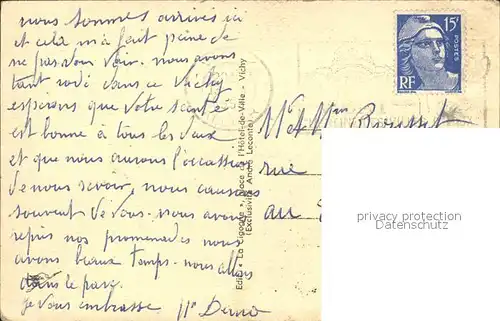 nous sommes arrivés ici
et cela m'a fait peine de
ne pas vous voir. nous avons
tant rodé dans ce Vichy
esperons que votre santé
est bonne à tous les deux
et que nous aurons l'occasion
de nous revoir, nous causons
souvent de vous. nous avons
repris nos promenades nous
avons beau temps. nous allons
dans le parc.
je vous embrasse
15F
POSTES
RF
Edit. « La Cigogne », place de l'Hôtel-de-Ville - Vichy
(Exclusivité André Leconte)
M et Mme Rousset
rue
au
privacy protection
Datenschutz